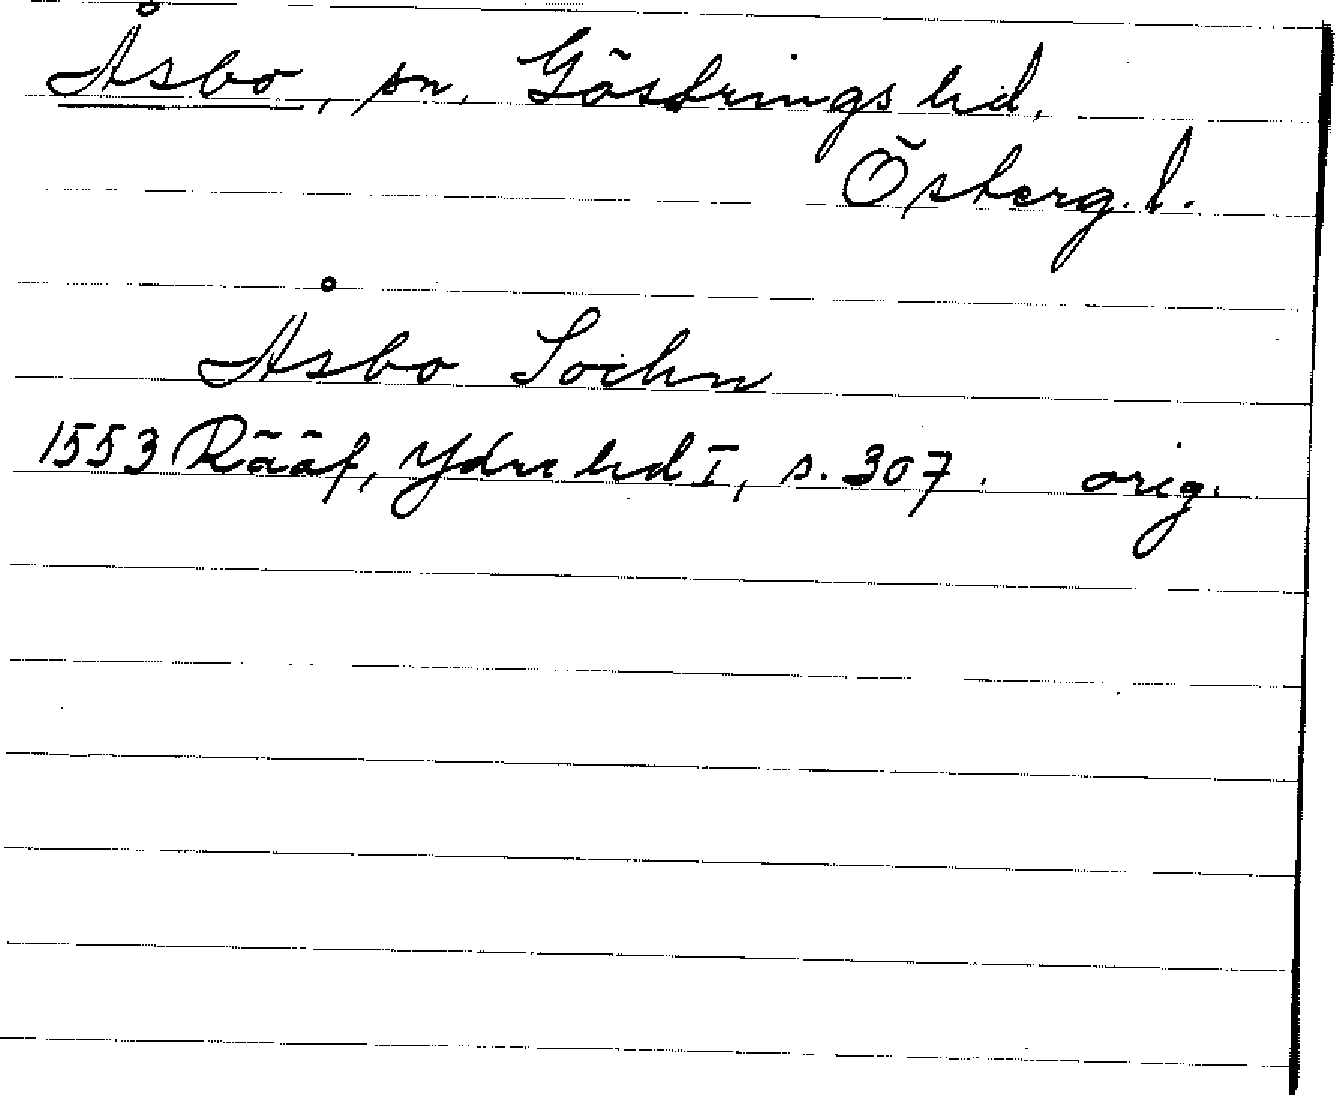 Åsbo, sn, Göstrings hd,
Österg. l.
Åsbo Sochn
1553 Rääf, Ydre hd I, s. 307. orig.